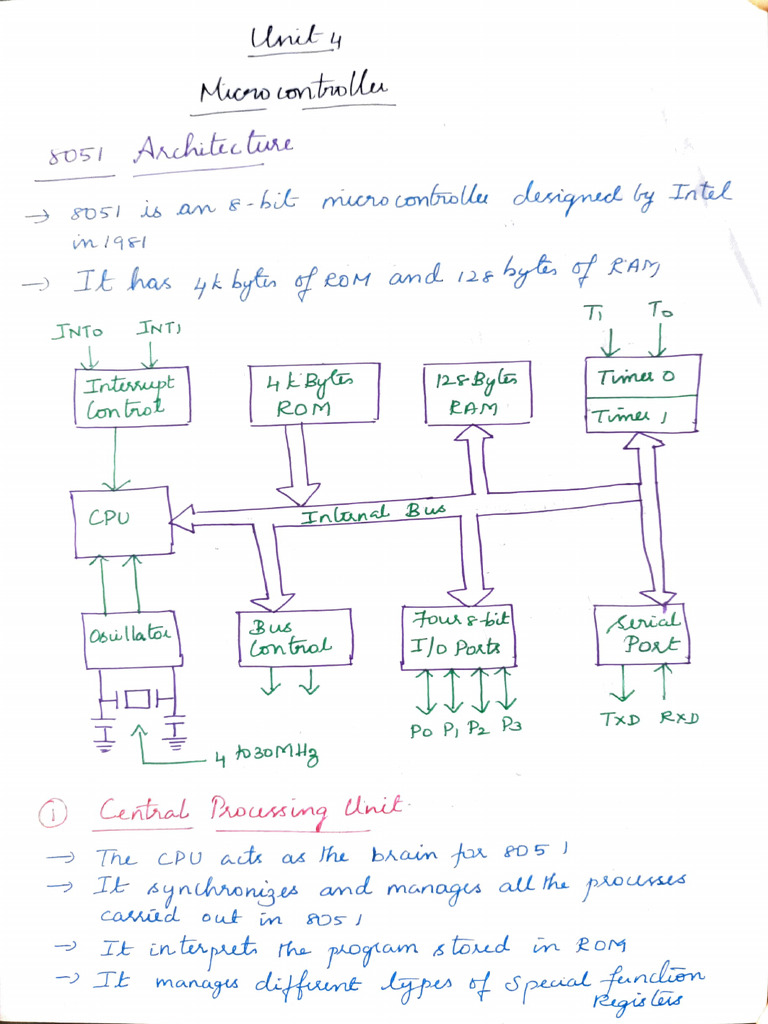 Unit 4
Microcontroller
8051 Architecture
→ 8051 is an 8-bit microcontroller designed by Intel
in 1981
→ It has 4k bytes of ROM and 128 bytes of RAM
INT0 INT1
T1 T0
Interrupt
Control
4k Bytes
ROM
128 Bytes
RAM
Timer 0
Timer 1
CPU
Internal Bus
Oscillator
Bus
Control
Four 8-bit
I/O Ports
Serial
Port
P0 P1 P2 P3
TXD RXD
4 to 30 MHz
① Central Processing Unit.
→ The CPU acts as the brain for 8051
→ It synchronizes and manages all the processes
carried out in 8051
→ It interprets the program stored in ROM
→ It manages different types of special function
Registers